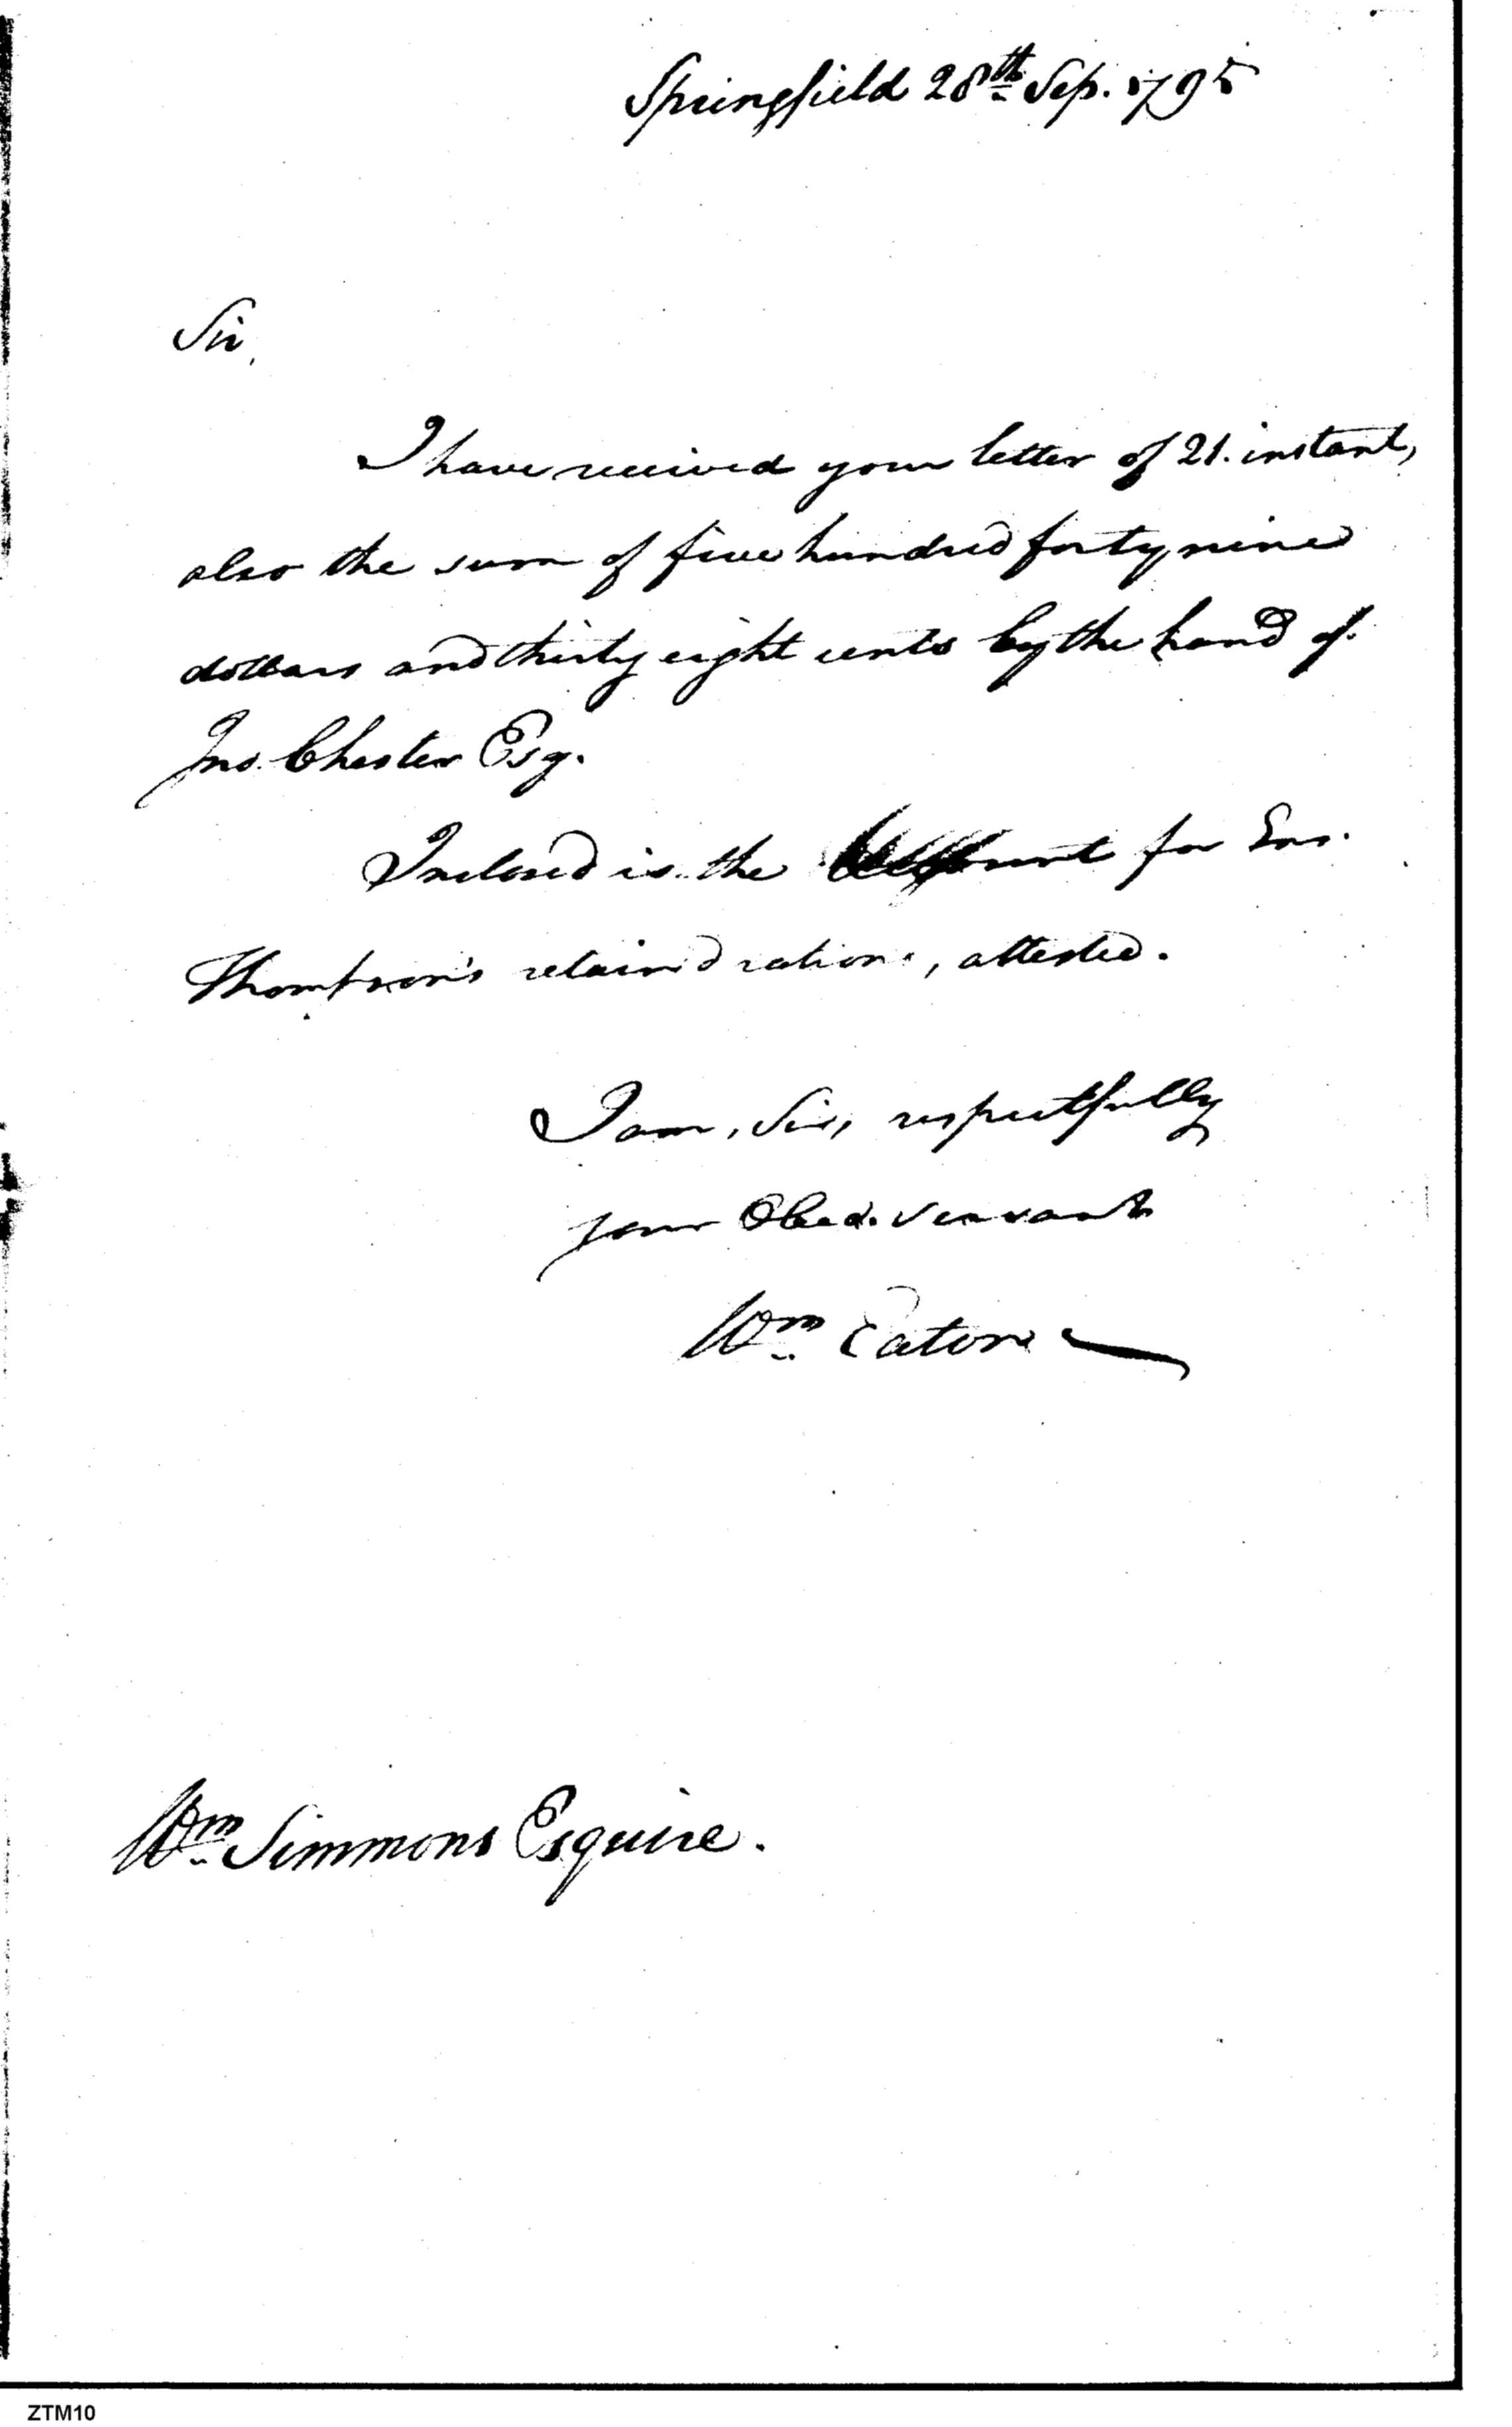 Springfield 28th Sep. 1795
Sir,
I have received your letter of 21. instant,
also the sum of five hundred forty nine
dollars and thirty eight cents by the hand of
Jno. Chester Esq.
Inclosed is the for Ens.
Thompson's retain'd rations, attested.
I am, Sir, respectfully
your Obed. servant
Wm Eaton
Wm Simmons Esquire.
ZTM10